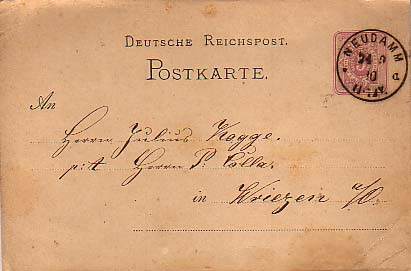 DEUTSCHE REICHSPOST.
POSTKARTE.
NEUDAMM
An
Herrn Julius Kagge.
p: A Herrn P: Colla.
in Wriezen a/O.